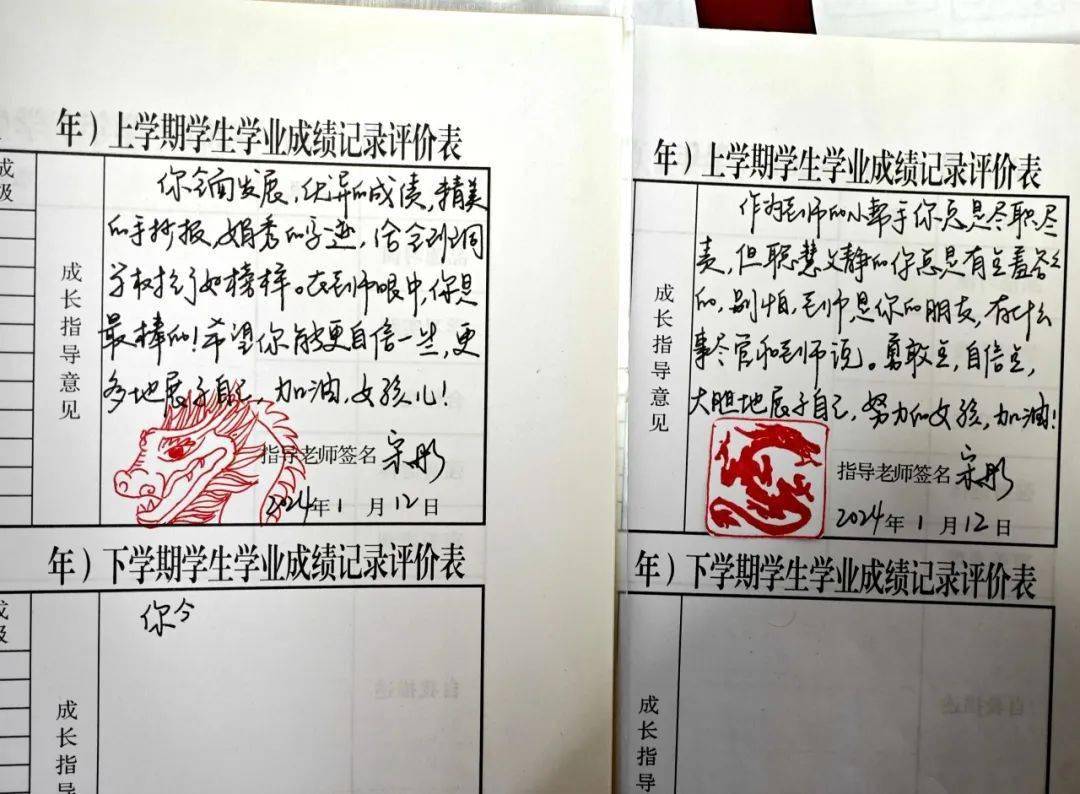 年）上学期学生学业成绩记录评价表
成
级
成长指导意见
你全面发展，优异的成绩，精美
的手抄报，娟秀的字迹，给全班同
学树立了好榜样。在老师眼中，你是
最棒的！希望你能更自信一些，更
多地展示自己，加油，女孩儿！
指导老师签名 宋彤
2024年1月12日
年）下学期学生学业成绩记录评价表
级
成长指导
你今
年）上学期学生学业成绩记录评价表
成长指导意见
作为老师的小帮手你总是尽职尽
责，但聪慧文静的你总是有点羞答答
的，别怕，老师是你的朋友，有什么
事尽管和老师说。勇敢点，自信点，
大胆地展示自己，努力的女孩，加油！
指导老师签名 宋彤
2024年1月12日
年）下学期学生学业成绩记录评价表
成长指导